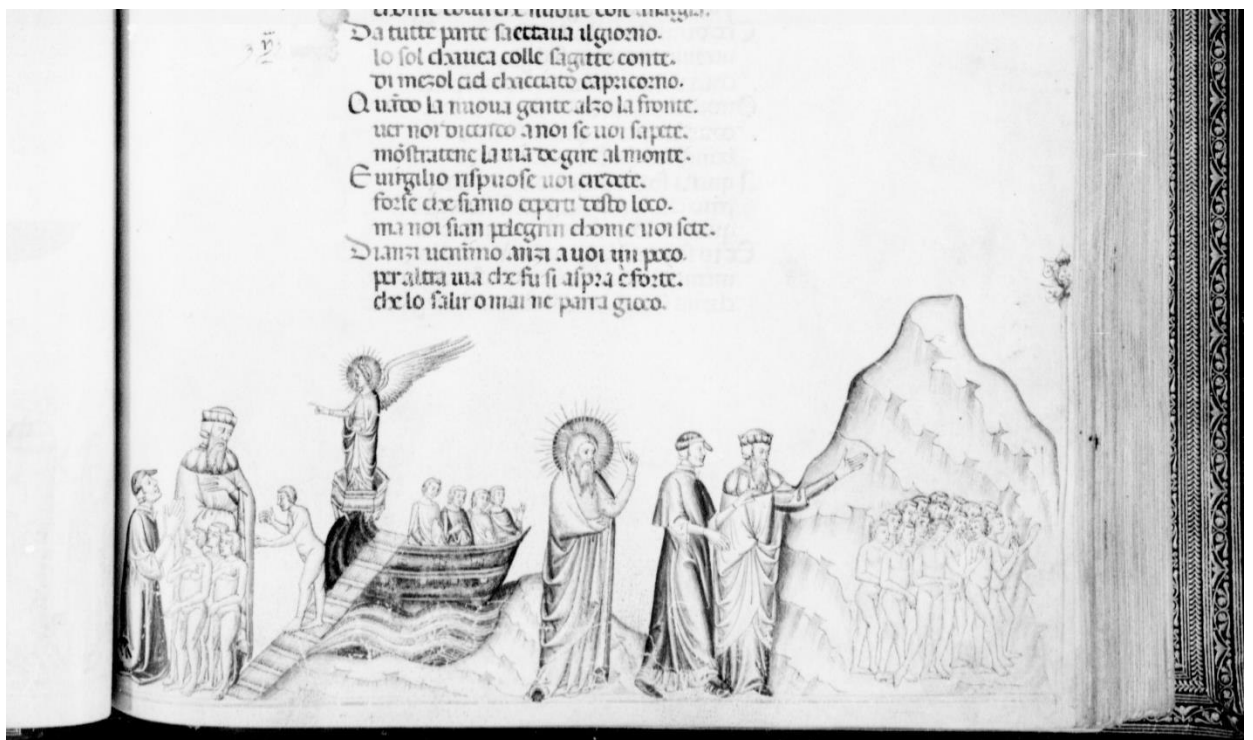 Da tutte parte saettaua ilgiorno.
lo sol chauea colle sagitte conte.
di mezol ciel chacciato capricorno.
Quãdo la nuoua gente alzo la fronte.
uer noi dicendo anoi se uoi sapete.
mõstratene la uia de gire al monte.
E uirgilio rispuose uoi credete.
forse che siamo experti desto loco.
ma noi sian pelegrin chome uoi sete.
Dianzi uenimo anzi a uoi un poco.
per altra uia che fu si aspra è forte.
che lo salir omai ne parra gioco.